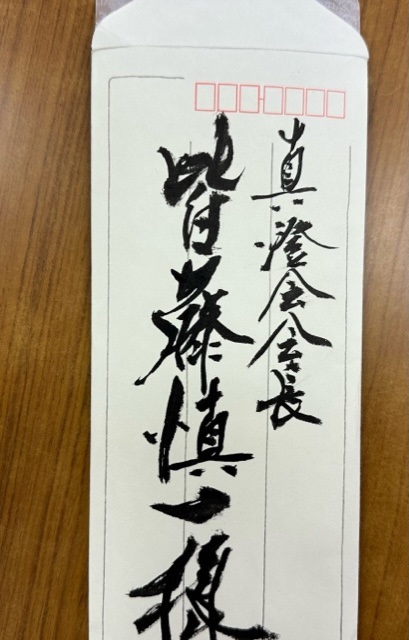 真澄会会長
皆藤慎一様